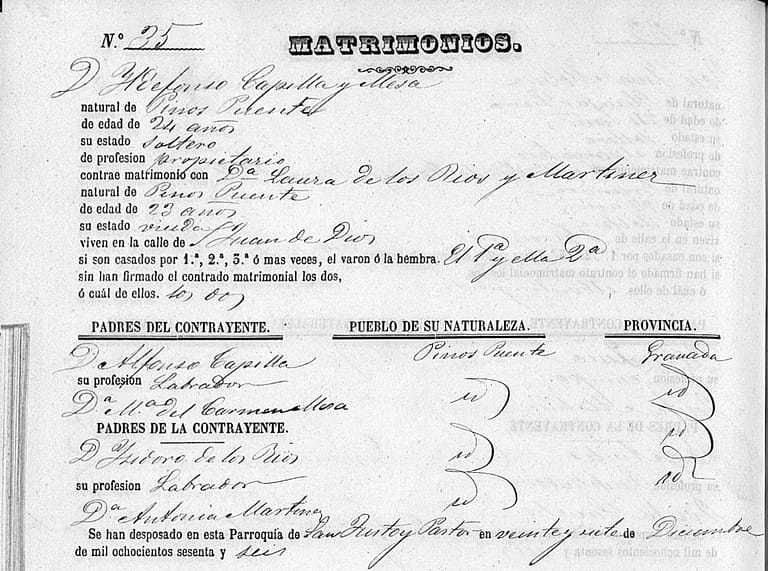 N.º 35 MATRIMONIOS.
D Yldefonso Capilla y Mesa
natural de Pinos Puente
de edad de 24 años
su estado soltero
de profesion propietario
contrae matrimonio con Dª Laura de los Rios y Martinez
natural de Pinos Puente
de edad de 23 años
su estado viuda
viven en la calle de S Juan de Dios
si son casados por 1.ª, 2.ª, 3.ª ó mas veces, el varon ó la hembra. El 1ª y ella 2ª
sin han firmado el contrado matrimonial los dos,
ó cuál de ellos. los dos
PADRES DEL CONTRAYENTE. PUEBLO DE SU NATURALEZA. PROVINCIA.
D. Alfonso Capilla Pinos Puente Granada
su profesion Labrador
D.ª M.ª del Carmen Mesa id id
PADRES DE LA CONTRAYENTE.
D Ysidoro de los Rios id id
su profesion Labrador
Dª Antonia Martinez id id
Se han desposado en esta Parroquia de San Justo y Pastor en veinte y siete de Diciembre
de mil ochocientos sesenta y seis